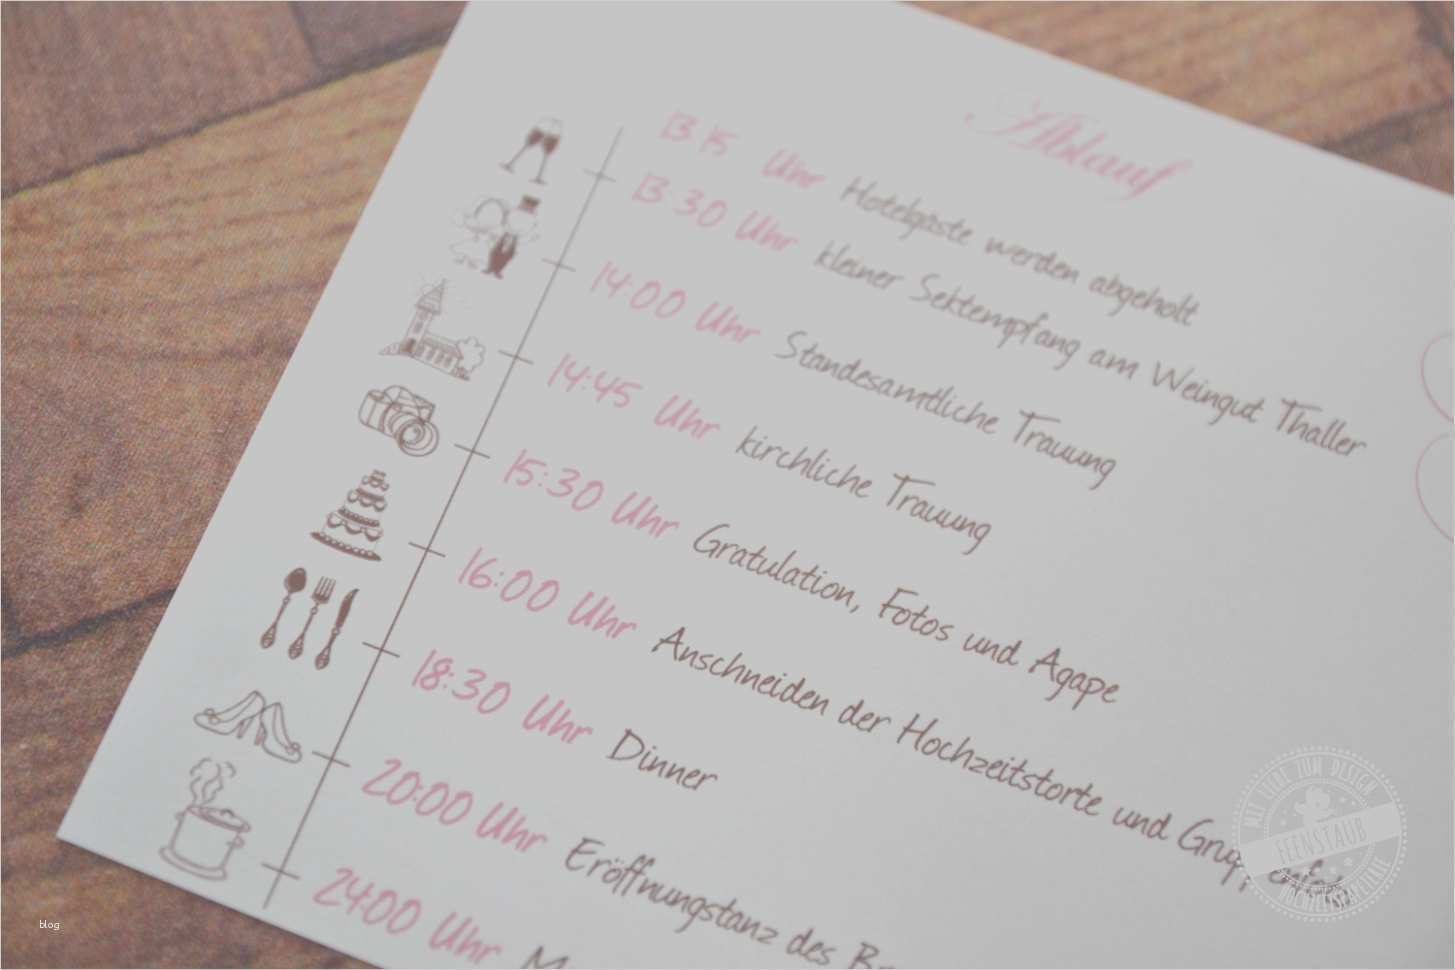 Ablauf
13:15 Uhr Hotelgäste werden abgeholt
13:30 Uhr kleiner Sektempfang am Weingut Thaller
14:00 Uhr Standesamtliche Trauung
14:45 Uhr kirchliche Trauung
15:30 Uhr Gratulation, Fotos und Agape
16:00 Uhr Anschneiden der Hochzeitstorte und
18:30 Uhr Dinner
20:00 Uhr Eröffnungstanz des
24:00 Uhr
MIT LIEBE ZUM DESIGN
FEENSTAUB
HOCHZEITSPAPETERIE
blog